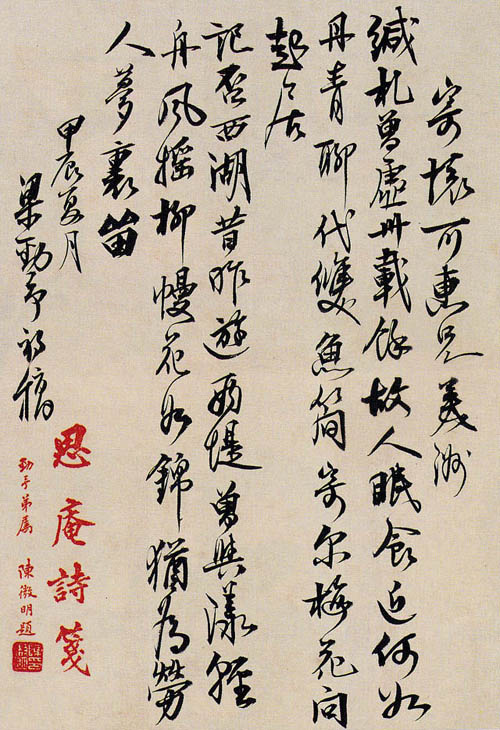 寄懷可惠兄美洲
緘札曾虛卅載餘故人眠食近何如
丹青聊代雙魚簡寄尔梅花問
起居
記否西湖昔昨遊西堤曾與漾輕
舟風搖柳幔花如錦猶為勞
人夢裏留
甲辰夏月
梁勁予初稿
思庵詩箋
勁予弟屬 陳微明題